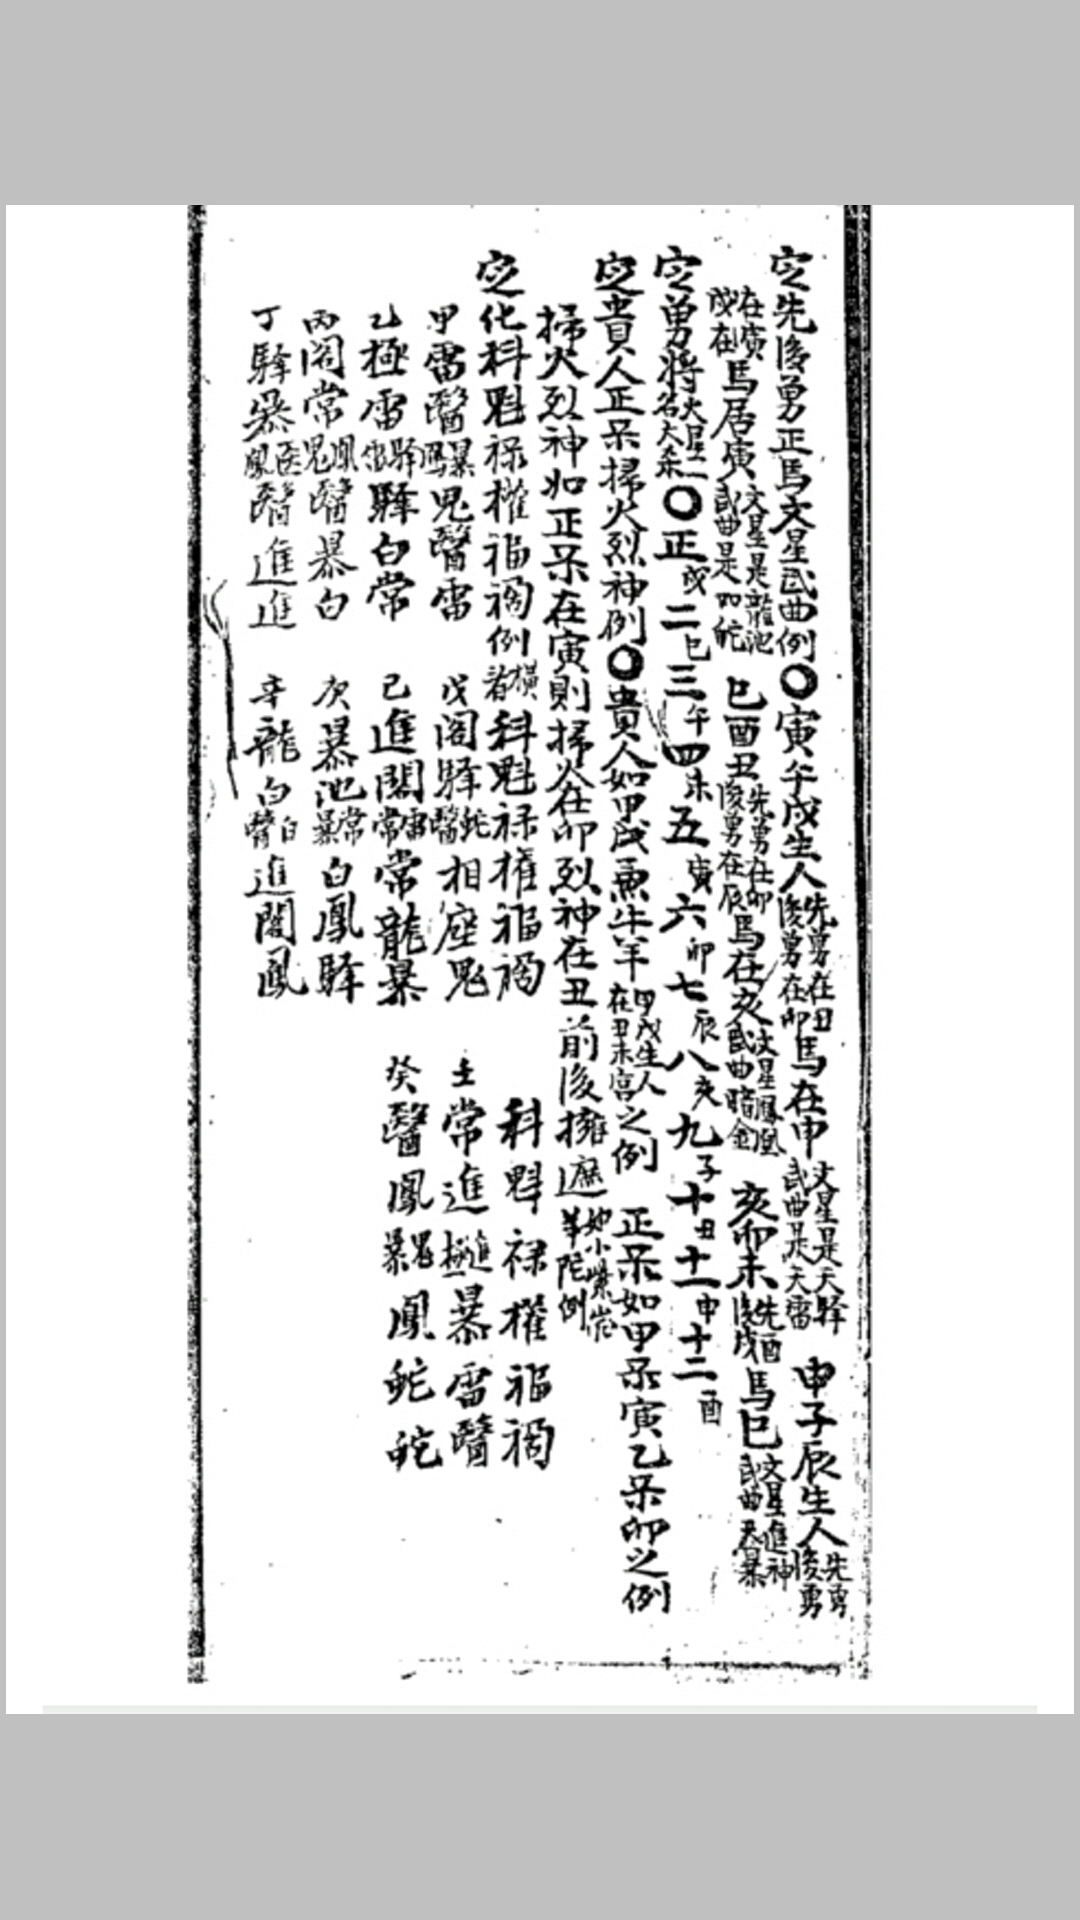 定先後勇正馬文星武曲例〇寅午戌生人先勇在丑後勇在卯馬在申文星是天驛武曲是天雷 申子辰生人先勇後勇
在寅戌在馬居寅文星是龍池武曲是如鉈 巳酉丑先勇在卯後勇在辰馬在亥文星鳳凰武曲暗金 亥卯未先酉後戌馬巳文星進神武曲天暴
定勇將火星一名大杀〇正戌二巳三午四未五寅六卯七辰八亥九子十丑十一申十二酉
定貴人正呆掃火烈神例〇貴人如甲戌兼牛羊甲戌生人在丑未宮之例 正呆如甲呆寅乙呆卯之例
掃火烈神如正呆在寅則掃火在卯烈神在丑前後擁遮如小紫微羊陀例
定化科魁祿權福禍例橫看 科魁祿權福禍 科魁祿權福禍
甲雷醫暴鬼醫雷 戊閣驛鉈醫相座鬼 壬常進進極暴雷醫
乙極雷驛驛白常 己進閣雷常常龍暴 癸醫鳳鬼暴鳳鉈鉈
丙閣常鳳鬼醫暴白 庚暴池常暴白鳳驛
丁驛暴医鳳醫進進 辛龍白白醫進閣鳳